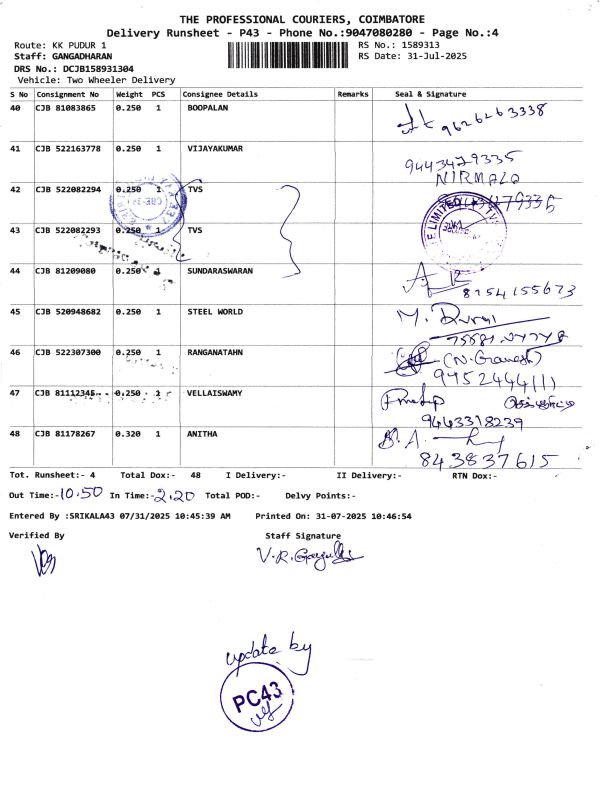 THE PROFESSIONAL COURIERS, COIMBATORE
Delivery Runsheet - P43 - Phone No.:9047080280 - Page No.:4
Route: KK PUDUR 1
RS No.: 1589313
Staff: GANGADHARAN
RS Date: 31-Jul-2025
DRS No.: DCJB158931304
Vehicle: Two Wheeler Delivery
S No Consignment No Weight PCS Consignee Details Remarks Seal & Signature
40 CJB 81083865 0.250 1 BOOPALAN
9626263338
41 CJB 522163778 0.250 1 VIJAYAKUMAR
9443479335
NIRMALA
42 CJB 522082294 0.250 1 TVS
43 CJB 522082293 0.250 1 TVS
44 CJB 81209080 0.250 1 SUNDARASWARAN
8754155673
45 CJB 520948682 0.250 1 STEEL WORLD
M. Durai
46 CJB 522307300 0.250 1 RANGANATAHN
(N. Ganesh)
9952444111
47 CJB 81112345 0.250 1 VELLAISWAMY
9443318239
48 CJB 81178267 0.320 1 ANITHA
843837615
Tot. Runsheet:- 4 Total Dox:- 48 I Delivery:- II Delivery:- RTN Dox:-
Out Time:-10.50 In Time:-2.20 Total POD:- Delvy Points:-
Entered By :SRIKALA43 07/31/2025 10:45:39 AM Printed On: 31-07-2025 10:46:54
Verified By Staff Signature
update by
PC43